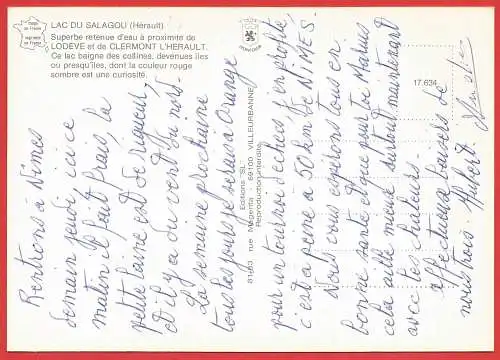 LAC DU SALAGOU (Hérault)
Superbe retenue d'eau à proximité de
LODEVE et de CLERMONT L'HERAULT.
Ce lac baigne des collines, devenues îles
ou presqu'îles, dont la couleur rouge
sombre est une curiosité.
17.634
Editions "SL"
81/83 rue Magenta 69100 VILLEURBANNE
Reproduction interdite
Rentrons à Nîmes
demain jeudi ici ce
matin il fait frais, la
petite laine est de rigueur,
et il y a du vent du nord.
La semaine prochaine
tous les jours je serais à Orange
pour un tournoi d'échecs, j'en profite
c'est à peine à 50 km de NIMES.
Nous vous espérons tous en
bonne santé et que pour toi Marius
cela aille mieux surtout maintenant
avec les chaleurs.
affectueux baisers de
nous trois. Hubert